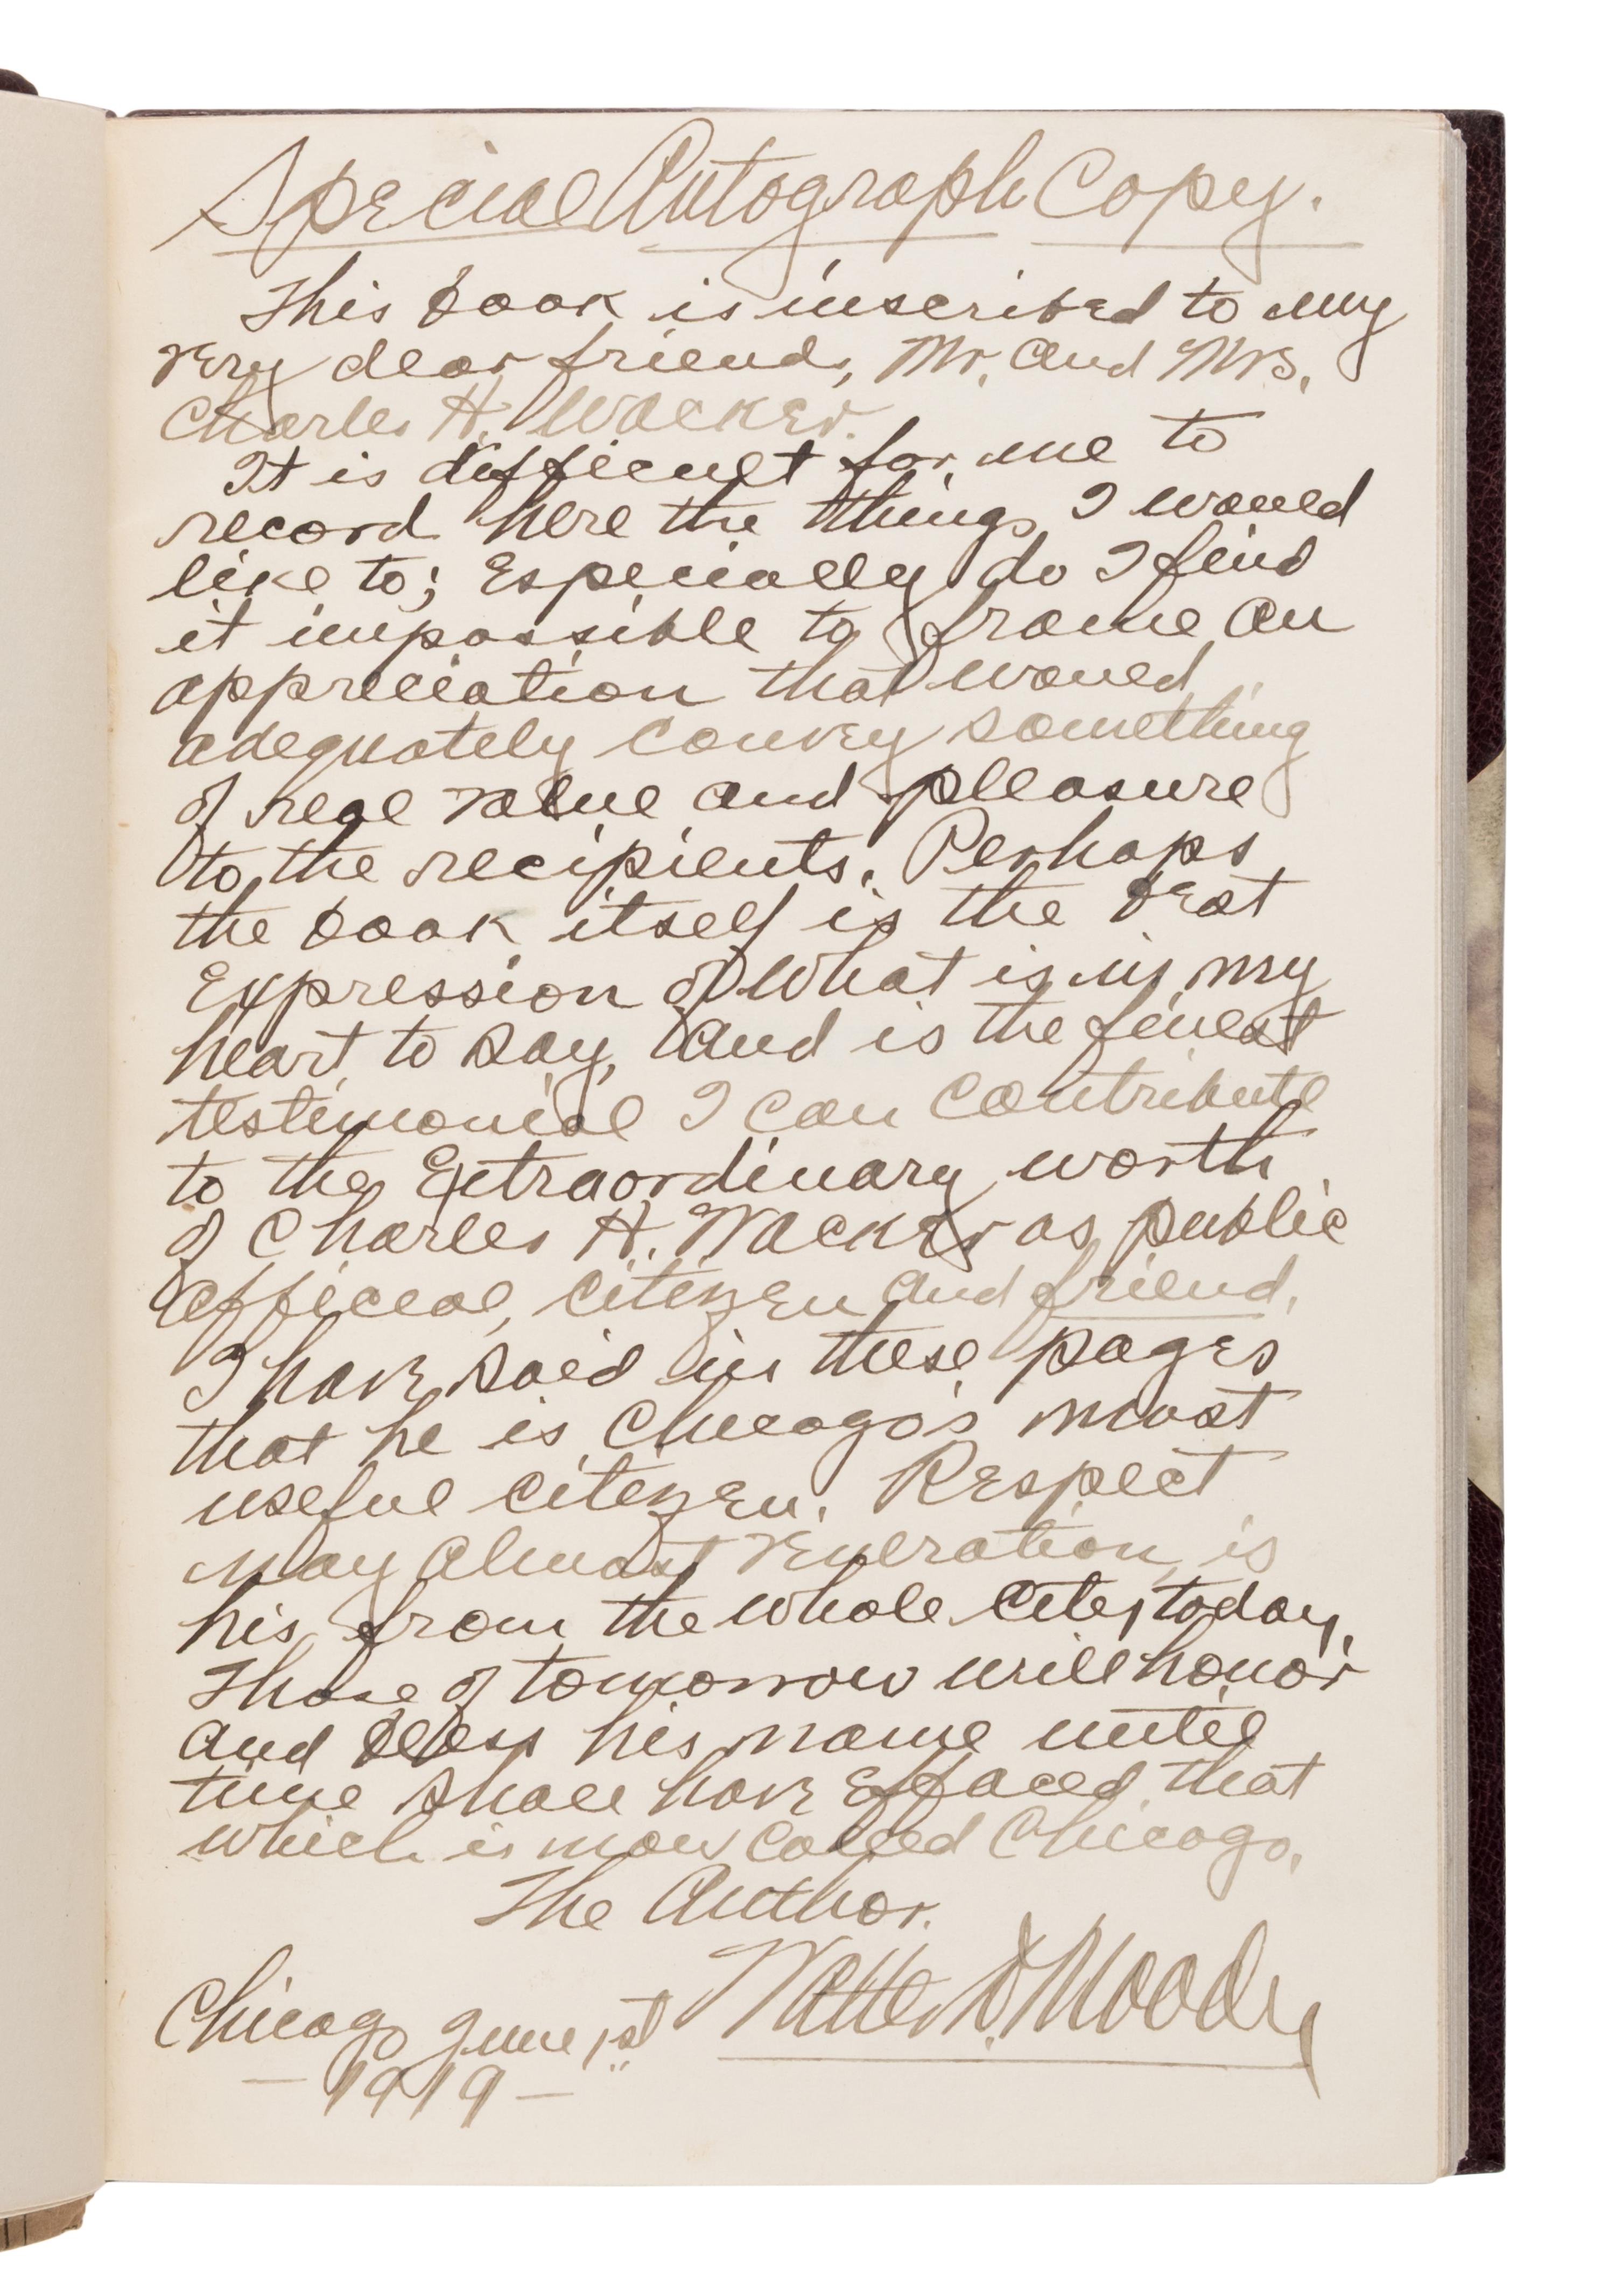 Special Autograph Copy.
This book is inscribed to my
very dear friends, Mr. and Mrs.
Charles H. Wacker.
It is difficult for me to
record here the things I would
like to; Especially do I find
it impossible to frame an
appreciation that would
adequately convey something
of real value and pleasure
to the recipients. Perhaps
the book itself is the best
Expression of what is in my
heart to say, and is the finest
testimonial I can contribute
to the Extraordinary worth
of Charles H. Wacker as public
official, citizen and friend.
I have said in these pages
that he is Chicago's most
useful citizen. Respect
nay almost veneration, is
his from the whole city today.
Those of tomorrow will honor
and bless his name until
time shall have Effaced that
which is now called Chicago.
The Author.
Walter D. Moody
Chicago June 1st
- 1919 -